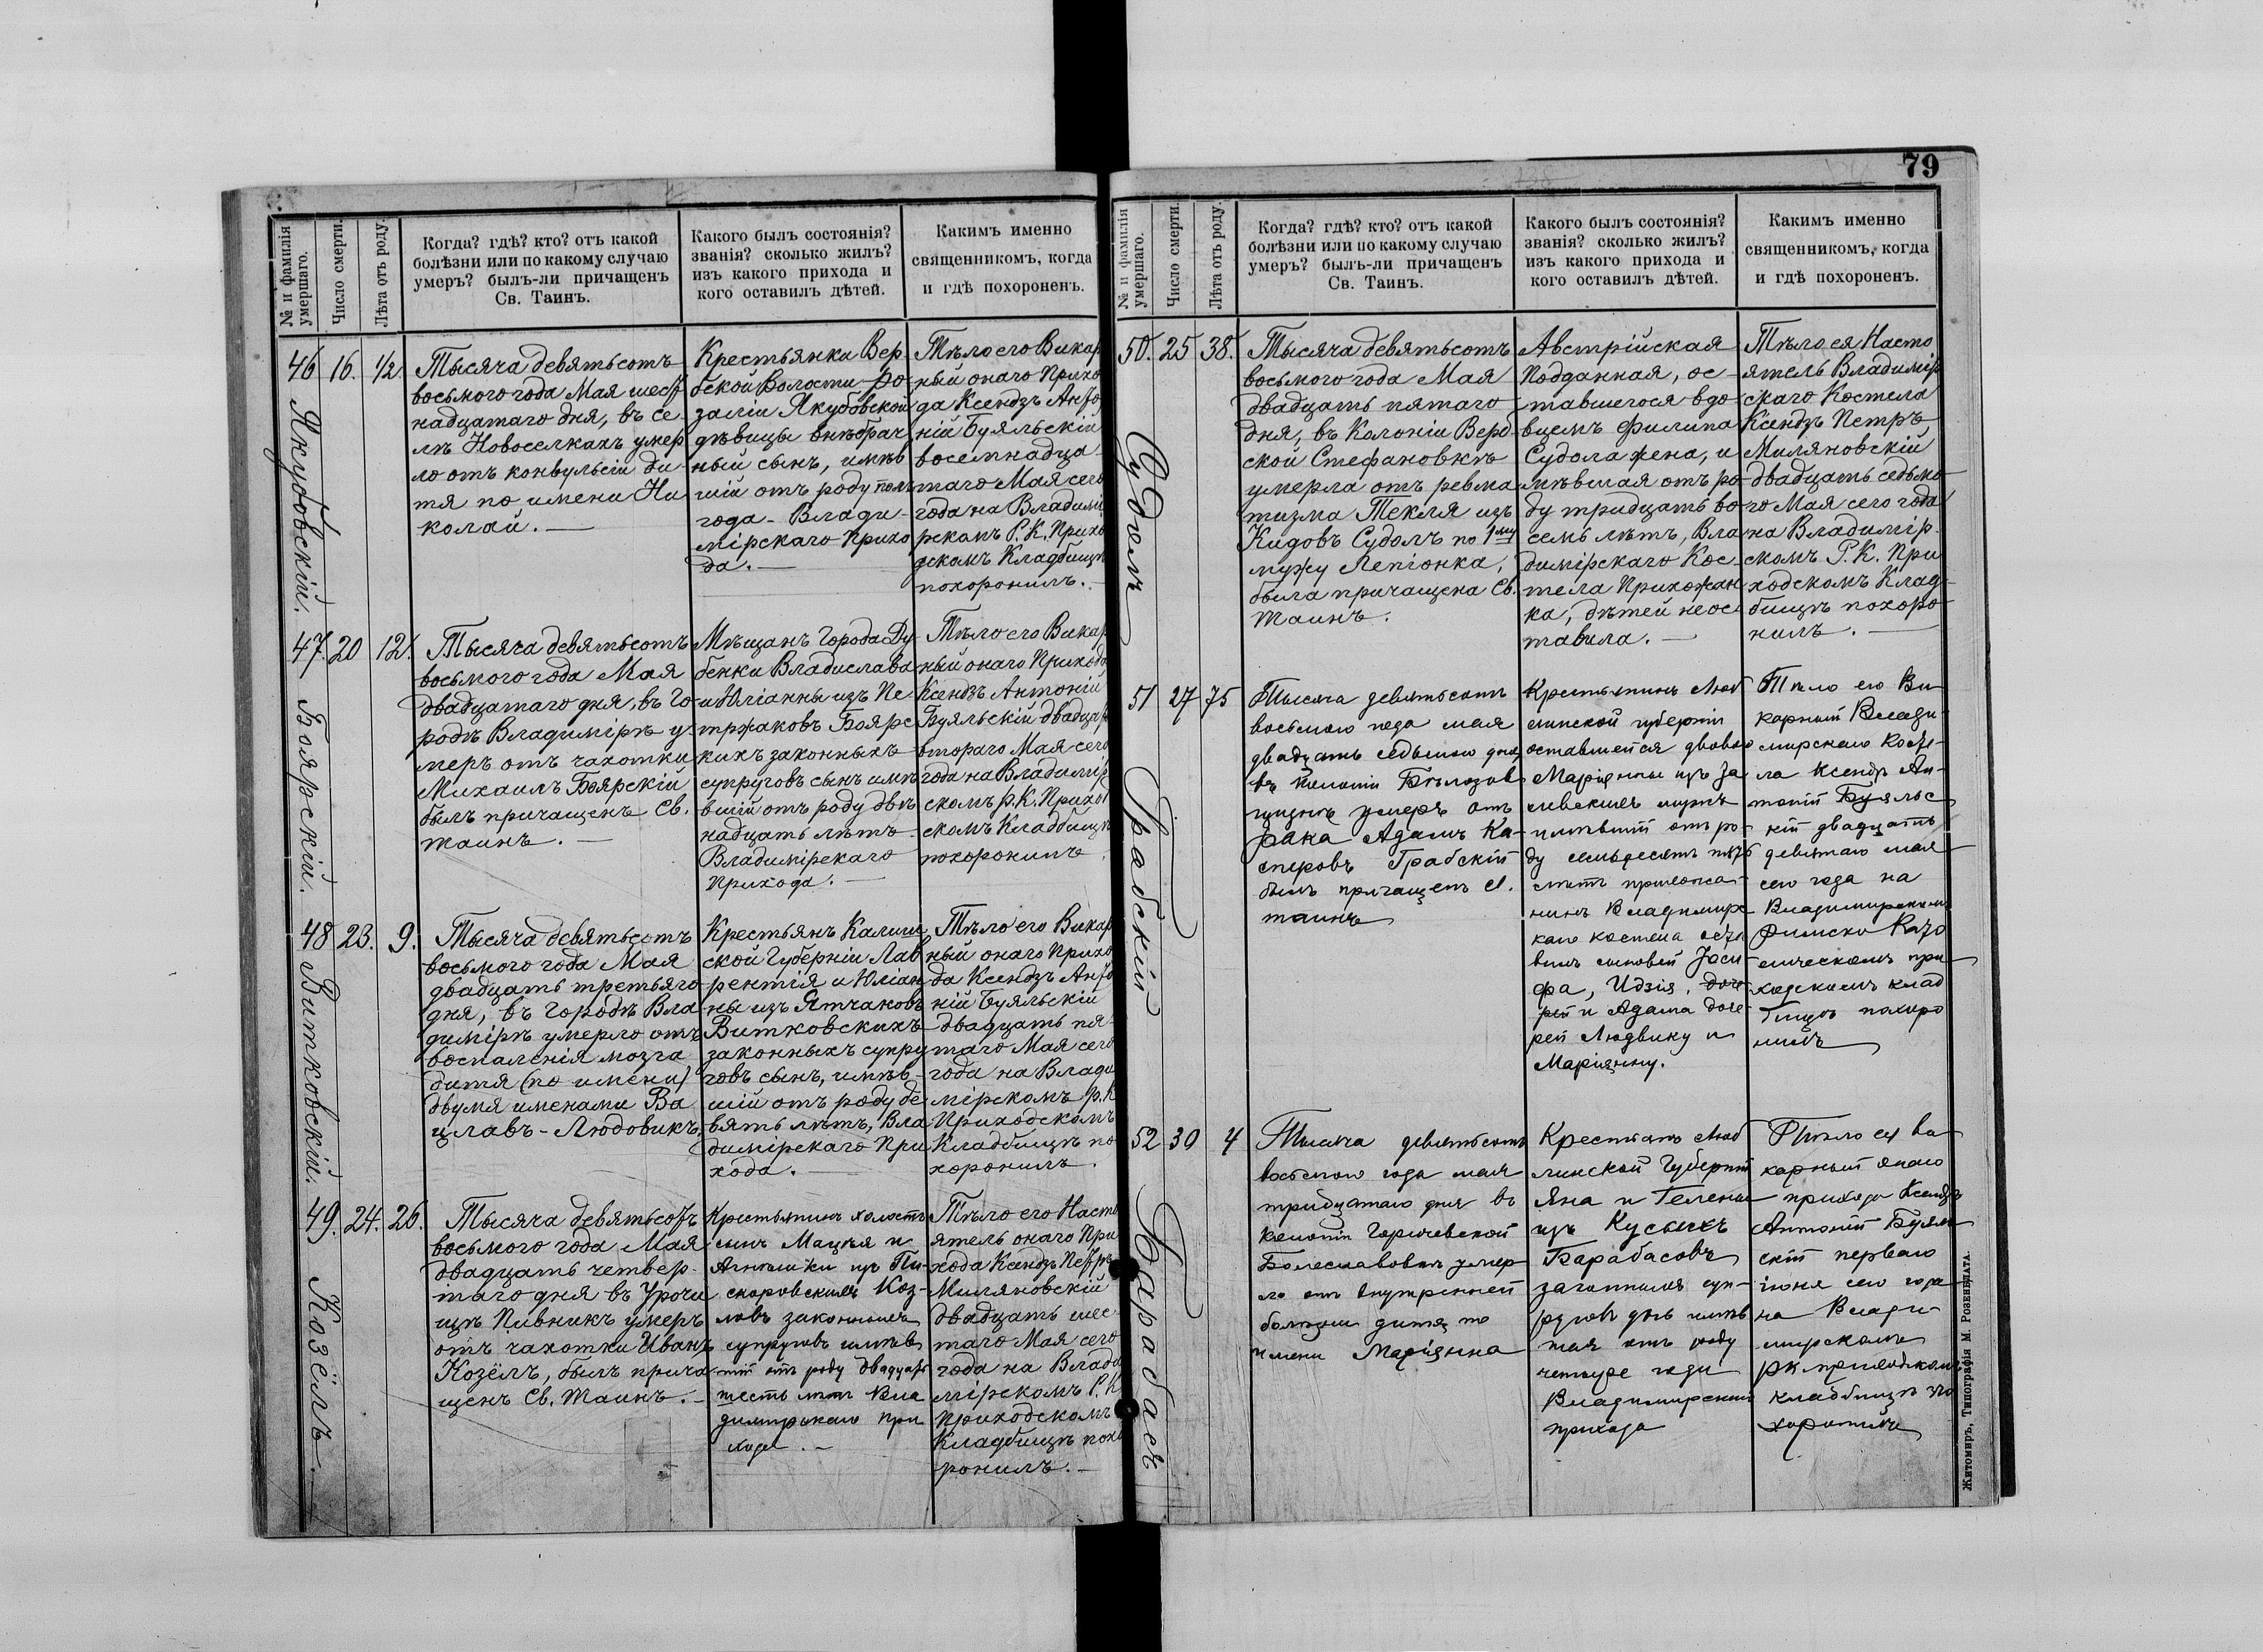 79
№ и фамилія
умершаго.
Число смерти.
Лѣта отъ роду.
Когда? гдѣ? кто? отъ какой
болѣзни или по какому случаю
умеръ? былъ-ли причащенъ
Св. Таинъ.
Какого былъ состоянія?
званія? сколько жилъ?
изъ какого прихода и
кого оставилъ дѣтей.
Какимъ именно
священникомъ, когда
и гдѣ похороненъ.
46
Якубовскій.
16.
1/2
Тысяча девятьсотъ
восьмого года Мая шест
надцатаго дня, въ се-
лѣ Новоселкахъ умер
ло отъ конвульсіи ди-
тя по имени Ни
колай.
Крестьянки Вер
бской Волости Ро
заліи Якубовской
дѣвицы внѣбрач
ный сынъ, имѣв
шій отъ роду пол
года - Влади-
мірскаго Прихо
да.
Тѣло его Викар
ный онаго Прихо
да Ксендзъ Анто
ній Буяльскій
восемнадца-
таго Мая сего
года на Владимі
рскомъ Р. К. Прихо
дскомъ Кладбищѣ
похоронилъ.
47.
Боярскій.
20
12.
Тысяча девятьсотъ
восьмого года Мая
двадцатаго дня, въ Го-
родѣ Владимірѣ у-
меръ отъ чахотки
Михаилъ Боярскій
былъ причащенъ Св.
Таинъ.
Мѣщанъ Города Ду
бенки Владислава
и Юліанны изъ Пе-
тржаковъ Боярс
кихъ законныхъ
супруговъ сынъ имѣ
вшій отъ роду двѣ
надцать лѣтъ
Владимірскаго
Прихода.
Тѣло его Викар
ный онаго Прихода
Ксендзъ Антоній
Буяльскій двадцать
втораго Мая сего
года на Владимір
скомъ Р. К. Приход
скомъ Кладбищѣ
похоронилъ
48
Витковскій.
23.
9.
Тысяча девятьсотъ
восьмого года Мая
двадцать третьяго
дня, въ Городѣ Вла
димірѣ умерло отъ
воспаленія мозга
дитя (по имени)
двумя именами Ва
цлавъ-Людовикъ.
Крестьянъ Калиш
ской Губерніи Лав
рентія и Юліан
ны изъ Ятчаковъ
Витковскихъ
законныхъ супру
говъ сынъ, имѣв-
шій отъ роду де-
вять лѣтъ, Вла
димірскаго При
хода.
Тѣло его Викар
ный онаго Прихо
да Ксендзъ Анто
ній Буяльскій
двадцать пя-
таго Мая сего
года на Влади
мірскомъ Р. К
Приходскомъ
Кладбищѣ по
хоронилъ.
49.
Козёлъ.
24.
26.
Тысяча девятьсотъ
восьмого года Мая
двадцать четвер-
таго дня въ Урочи
щѣ Пивникъ умеръ
отъ чахотки Иванъ
Козёлъ, былъ прича
щенъ Св. Таинъ.
Крестьянинъ холостъ
сынъ Мацѣя и
Агнѣшки изъ Пи-
скоровскихъ Коз-
ловъ законныхъ
супруговъ имѣв
шій отъ роду двадцать
шесть лѣтъ Вла
димірскаго при
хода.
Тѣло его Насто
ятель онаго При
хода Ксендзъ Петръ
Миляновскій
двадцать шес-
таго Мая сего
года на Влади
мірскомъ Р. К
Приходскомъ
Кладбищѣ похо
ронилъ.
№ и фамилія
умершаго.
Число смерти.
Лѣта отъ роду.
Когда? гдѣ? кто? отъ какой
болѣзни или по какому случаю
умеръ? былъ-ли причащенъ
Св. Таинъ.
Какого былъ состоянія?
званія? сколько жилъ?
изъ какого прихода и
кого оставилъ дѣтей.
Какимъ именно
священникомъ, когда
и гдѣ похороненъ.
50.
Судолъ
25
38.
Тысяча девятьсотъ
восьмого года Мая
двадцать пятаго
дня, въ Колоніи Верб-
ской Стефановкѣ
умерла отъ ревма
тизма Текля изъ
Кидовъ Судолъ по 1му
мужу Лепіонка,
была причащена Св.
Таинъ.
Австрійская
Подданная, ос-
тавшегося вдо
вцемъ Филипа
Судола жена, и
мѣвшая отъ ро-
ду тридцать во
семь лѣтъ, Вла
димірскаго Кос-
тела Прихожан
ка, дѣтей не ос
тавила.
Тѣло ея Насто
ятель Владимір
скаго Костела
Ксендзъ Петръ
Миляновскій
двадцать седьмо
го Мая сего года
на Владимір-
скомъ Р. К. При
ходскомъ Клад-
бищѣ похоро-
нилъ.
51
Грабскій
27
75
Тысяча девятьсотъ
восьмого года мая
двадцать седьмого дня
въ колоніи Бѣлозов
щизнѣ умеръ отъ
рака Адамъ Ка-
сперовъ Грабскій
былъ причащенъ св.
таинъ
Крестьянинъ Люб
линской губерніи
оставшейся вдовою
Маріянны изъ За
ливскихъ мужъ
имѣвшій отъ ро-
ду семьдесятъ пять
лѣтъ прихожа
нинъ Владимірс
каго костела оста
вилъ сыновей Іоси
фа, Идзія, доче
рей и Адама доче-
рей Людвику и
Маріянну.
Тѣло его Ви
карный Влади
мірскаго Косте-
ла Ксендзъ Ан-
тоній Буяльс
кій двадцать
девятаго мая
сего года на
Владимірскомъ
Римско Като
лическомъ при
ходскомъ клад
бищѣ похоро
нилъ
52
Барабасъ
30
4
Тысяча девятьсотъ
восьмого года мая
тридцатаго дня въ
колоніи Горичевской
Болеславовкѣ умер-
ло отъ внутренней
болѣзни дитя по
имени Маріянна
Крестьянъ Люб
линской Губерніи
Яна и Гелены
изъ Кусыкъ
Барабасовъ
законныхъ суп-
руговъ дочь имѣв
шая отъ роду
четыре года
Владимірскаго
прихода
Тѣло ея ви
карный онаго
прихода Ксендзъ
Антоній Буяль
скій перваго
іюня сего года
на Влади-
мірскомъ
РК приходскомъ
кладбищѣ по
хоронилъ
Житомиръ, Типографія М. Розенблата.